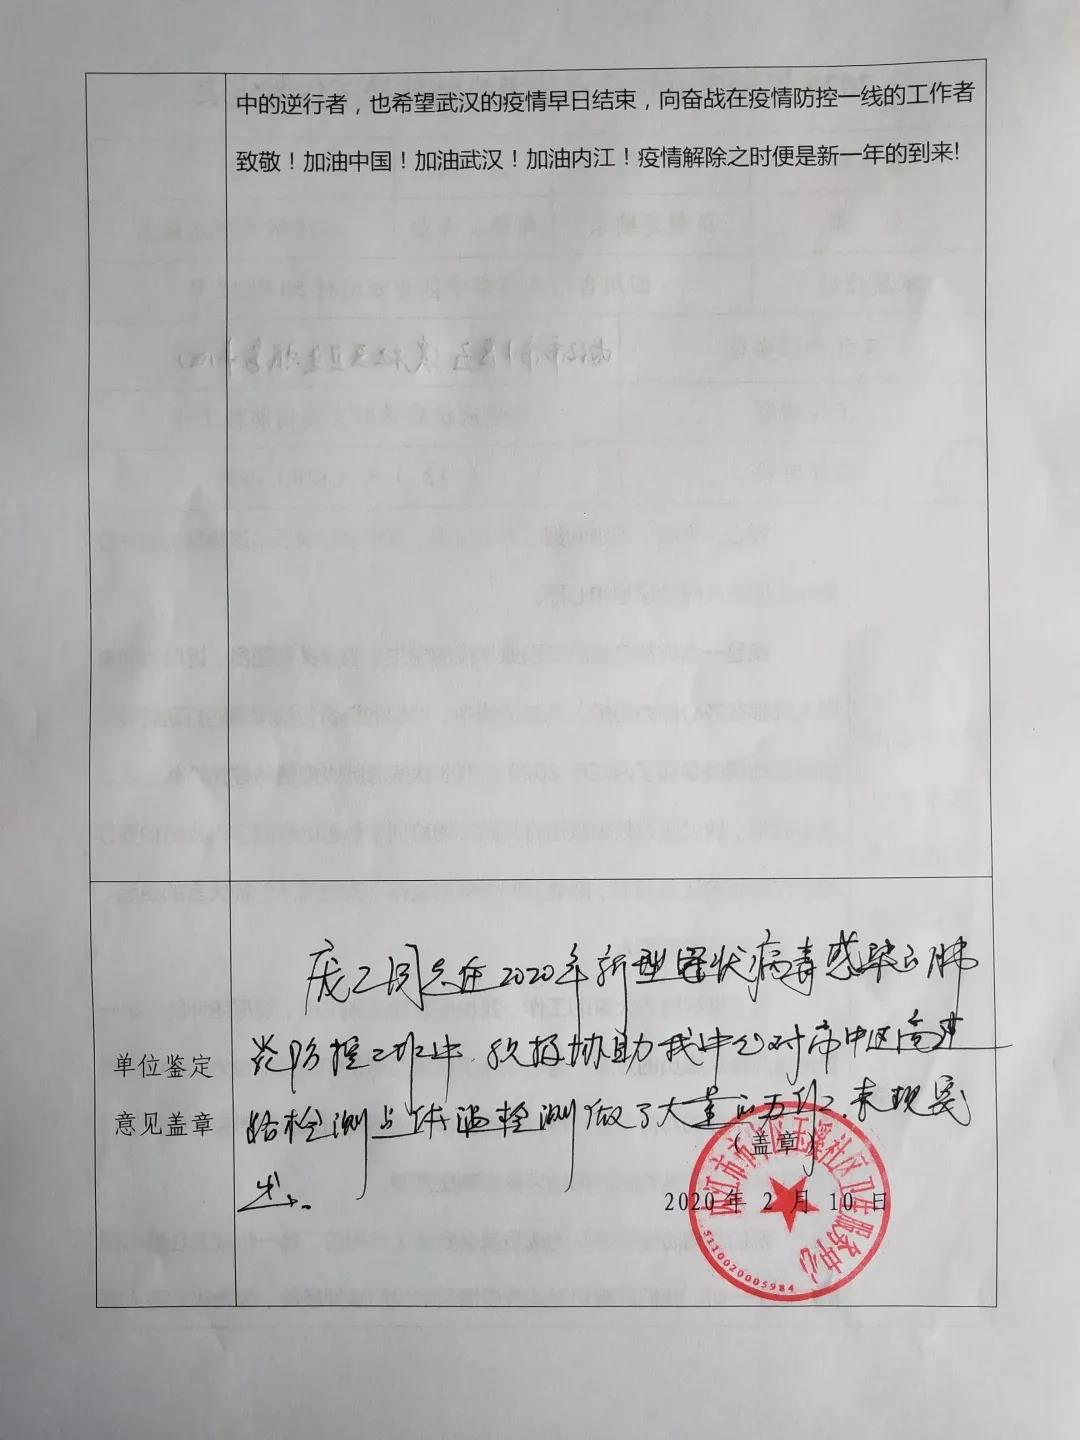 中的逆行者，也希望武汉的疫情早日结束，向奋战在疫情防控一线的工作者
致敬！加油中国！加油武汉！加油内江！疫情解除之时便是新一年的到来!
同志在2020年新型冠状病毒感染的肺
炎防控工作中，积极协助我中心对市中区高速
路检测点体温检测做了大量的工作，表现突
出。
单位鉴定
意见盖章
（盖章）
2020 年 2 月 10 日
内江市市中区玉溪社区卫生服务中心
5110020005984